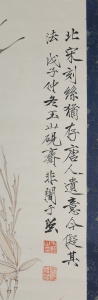 北宋刻絲猶存唐人遺意今擬其
法戊子仲冬玉山硯齋非闇于照